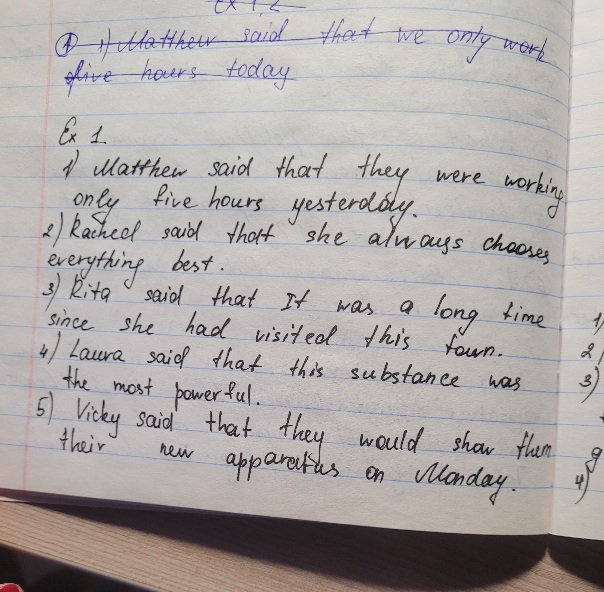 Ex 1, 2
1) Matthew said that we only work
five hours today
Ex 1.
1) Matthew said that they were working
only five hours yesterday.
2) Racheel said that she always chooses
everything best.
3) Rita said that It was a long time
since she had visited this town.
4) Laura said that this substance was
the most powerful.
5) Vicky said that they would show them
their new apparatus on Monday.
1)
2)
3)
4)